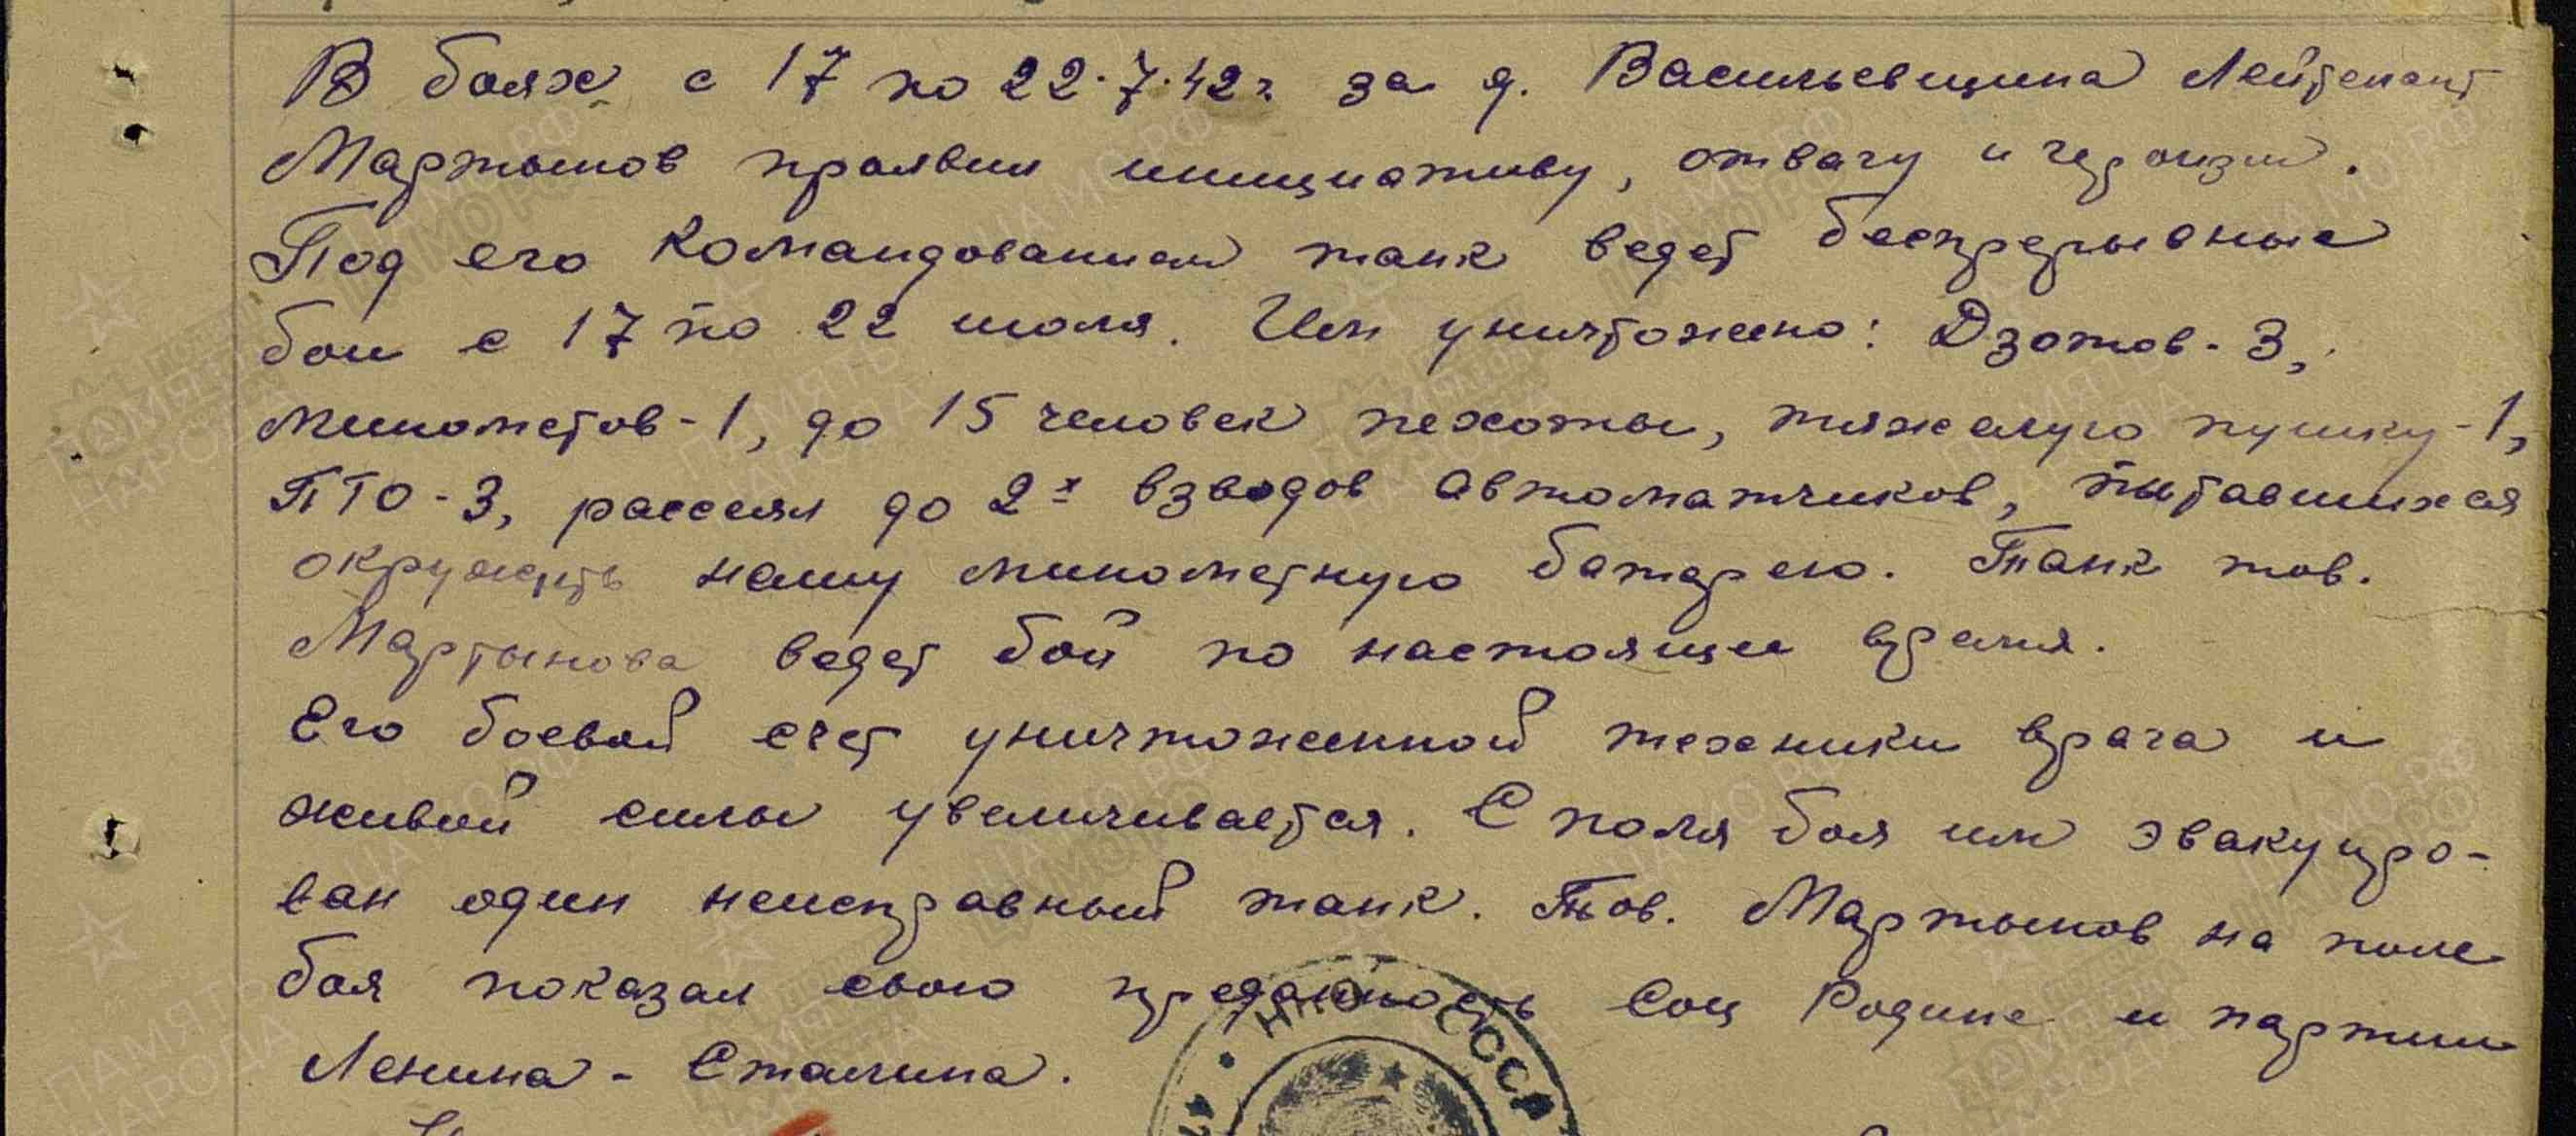 В боях с 17 по 22.7.42г. за д. Васильевщина Лейтенант
Мартынов проявил инициативу, отвагу и героизм.
Под его командованием танк ведет беспрерывные
бои с 17 по 22 июля. Им уничтожено: Дзотов - 3,
минометов - 1, до 15 человек пехоты, тяжелую пушку - 1,
ПТО - 3, рассеял до 2х взводов автоматчиков, пытавшихся
окружить нашу минометную батарею. Танк тов.
Мартынова ведет бой по настоящее время.
Его боевой счет уничтоженной техники врага и
живой силы увеличивается. С поля боя им эвакуиро-
ван один неисправный танк. Тов. Мартынов на поле
боя показал свою преданность Соц Родине и партии
Ленина - Сталина.
НКО СССР